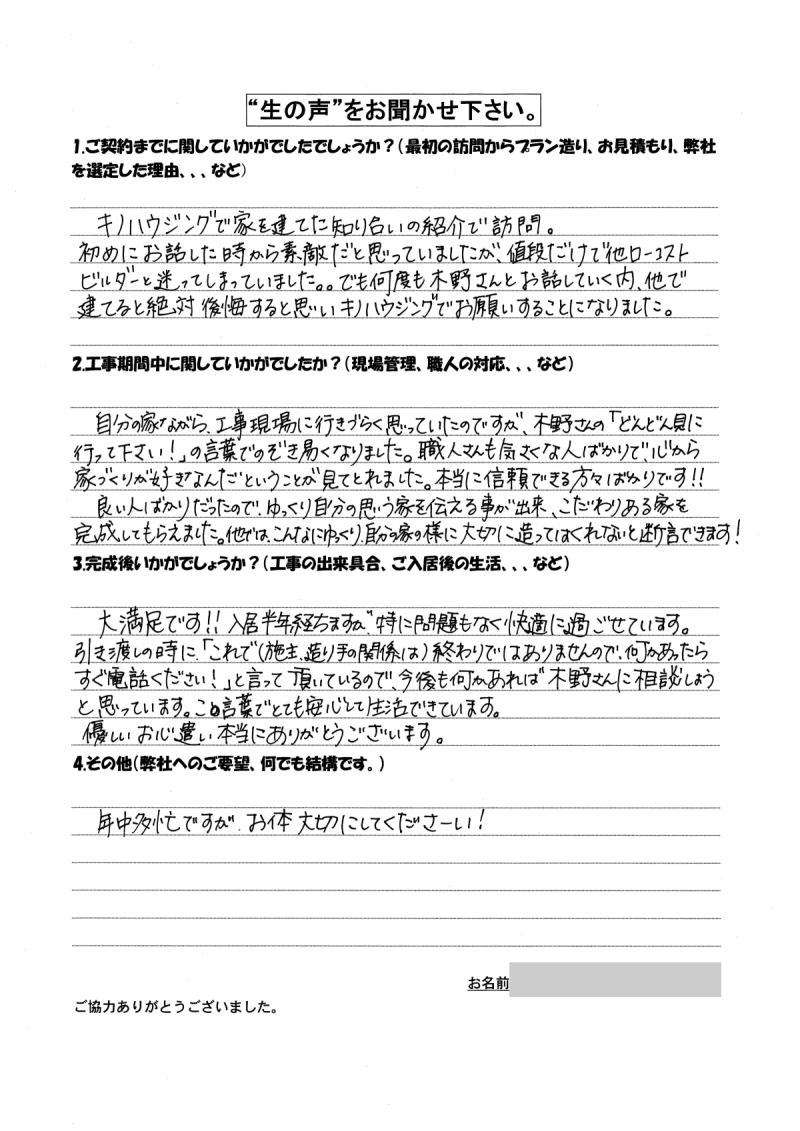 “生の声”をお聞かせ下さい。
1.ご契約までに関していかがでしたでしょうか？（最初の訪問からプラン造り、お見積もり、弊社
を選定した理由、、、など）
キノハウジングで家を建てた知り合いの紹介で訪問。
初めにお話した時から素敵だと思っていましたが、値段だけで他ローコスト
ビルダーと迷ってしまっていました。。でも何度も木野さんとお話していく内、他で
建てると絶対後悔すると思いキノハウジングでお願いすることになりました。
2.工事期間中に関していかがでしたか？（現場管理、職人の対応、、、など）
自分の家ながら、工事現場に行きづらく思っていたのですが、木野さんの「どんどん見に
行って下さい！」の言葉でのぞき易くなりました。職人さんも気さくな人ばかりで、心から
家づくりが好きなんだということが見てとれました。本当に信頼できる方々ばかりです!!
良い人ばかりだったので、ゆっくり自分の思う家を伝える事が出来、こだわりある家を
完成してもらえました。他では、こんなにゆっくり、自分の家の様に大切に造ってはくれないと断言できます！
3.完成後いかがでしょうか？（工事の出来具合、ご入居後の生活、、、など）
大満足です!! 入居半年経ちますが、特に問題もなく快適に過ごせています。
引き渡しの時に、「これで（施主、造り手の関係は）終わりではありませんので、何かあったら
すぐ電話ください！」と言って頂いているので、今後も何かあれば木野さんに相談しよう
と思っています。この言葉でとても安心して生活できています。
優しいお心遣い本当にありがとうございます。
4.その他（弊社へのご要望、何でも結構です。）
年中多忙ですが、お体大切にしてくださーい！
お名前
ご協力ありがとうございました。